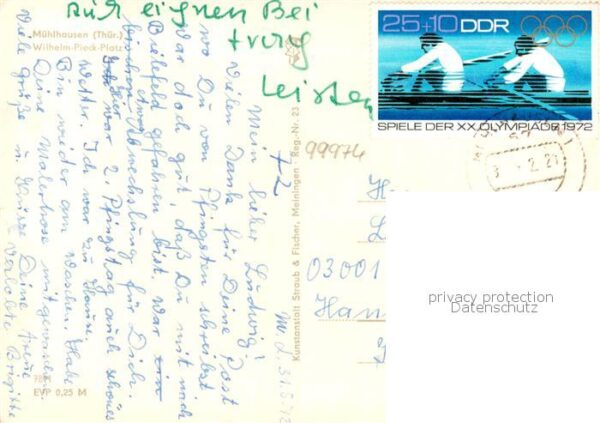 nur eignen Bei
trag
leisten
Mühlhausen (Thür.)
Wilhelm-Pieck-Platz
25+10 DDR
SPIELE DER XX. OLYMPIADE 1972
99974
+2
Mein lieber Ludwig!
Vielen Dank für Deine Post
wo Du von Pfingsten schreibst.
War doch gut, daß Du mit nach
Bielefeld gefahren bist. War
etwas Abwechslung für Dich.
war 2. Pfingstag auch schönes
Wetter. Ich war zu Hause.
Bin wieder am Waschen. Habe
Deine mitgewaschen.
Viele Grüße u Küsse Deine treue
verlobte Brigitte
M. d. 31.5.72
Kunstanstalt Straub & Fischer, Meiningen - Reg.-Nr. 23
EVP 0,25 M
03001
Han
privacy protection
Datenschutz